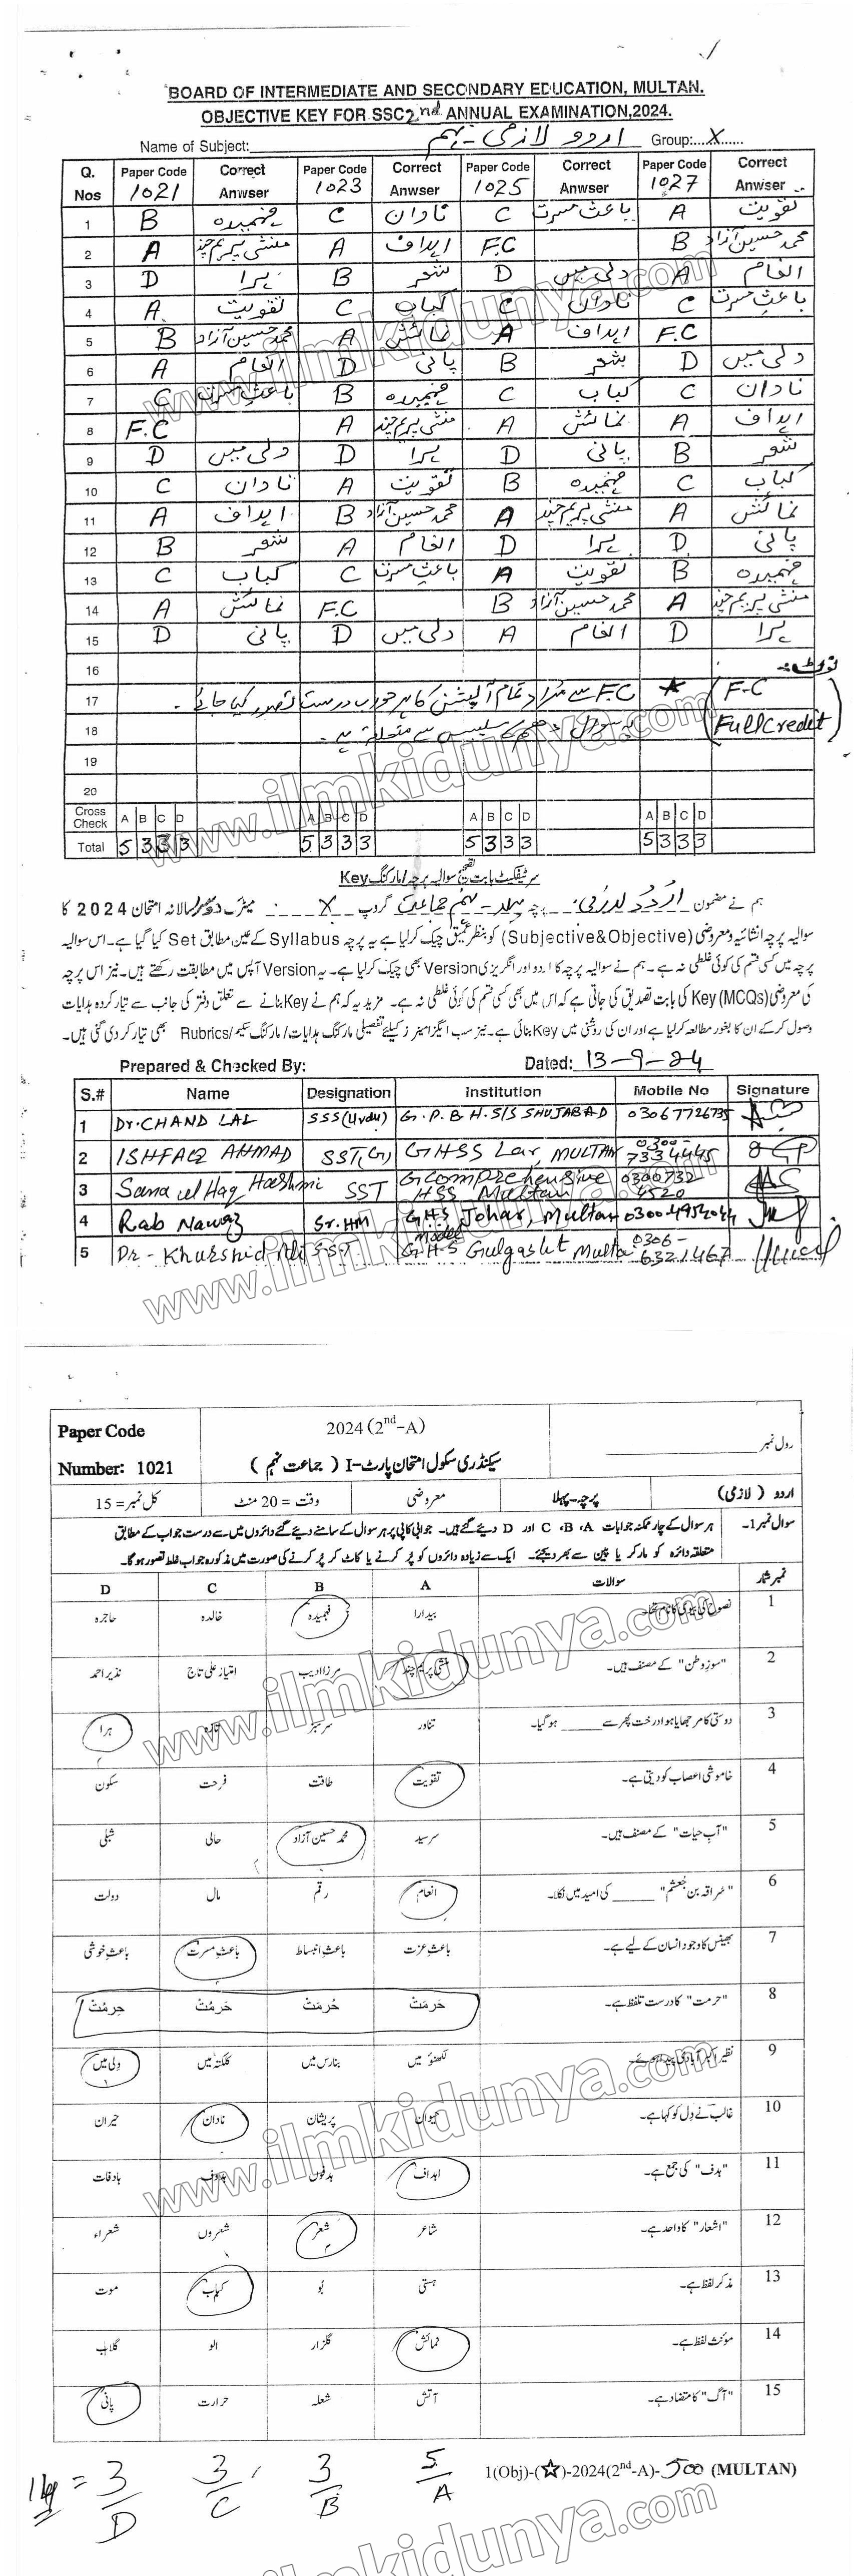 BOARD OF INTERMEDIATE AND SECONDARY EDUCATION, MULTAN.
OBJECTIVE KEY FOR SSC 2nd ANNUAL EXAMINATION,2024.
Name of Subject: اردو لازمی - نہم Group:...X......
Q. Nos Paper Code 1021 Correct Anwser Paper Code 1023 Correct Anwser Paper Code 1025 Correct Anwser Paper Code 1027 Correct Anwser
1 B فہمیدہ C نادان C باعث مسرت A تقویت
2 A منشی پریم چند A اہداف F.C B محمد حسین آزاد
3 D ہرا B شعر D دلی میں A انعام
4 A تقویت C کباب C نادان C باعث مسرت
5 B محمد حسین آزاد A نمائش A اہداف F.C
6 A انعام D پانی B شعر D دلی میں
7 C باعث مسرت B فہمیدہ C کباب C نادان
8 F.C A منشی پریم چند A نمائش A اہداف
9 D دلی میں D ہرا D پانی B شعر
10 C نادان A تقویت B فہمیدہ C کباب
11 A اہداف B محمد حسین آزاد A منشی پریم چند A نمائش
12 B شعر A انعام D ہرا D پانی
13 C کباب C باعث مسرت A تقویت B فہمیدہ
14 A نمائش F.C B محمد حسین آزاد A منشی پریم چند
15 D پانی D دلی میں A انعام D ہرا
16 نوٹ:
17 F.C ★ F.C سے مراد تمام آپشن کا ہر جواب درست تصور کیا جائے۔
18 (Full Credit) یہ سوال سلیبس سے متعلقہ ہے۔
19
20
Cross Check A B C D A B C D A B C D A B C D
Total 5 3 3 3 5 3 3 3 5 3 3 3 5 3 3 3
سرٹیفکیٹ بابت تصحیح سوالیہ پرچہ/مارکنگ Key
ہم نے مضمون اردو لازمی پرچہ پہلا - نہم جماعت گروپ X میٹرک دوسرا سالانہ امتحان 2024 کا
سوالیہ پرچہ انشائیہ و معروضی (Subjective&Objective) کو بنظر عمیق چیک کر لیا ہے یہ پرچہ Syllabus کے عین مطابق Set کیا گیا ہے۔ اس سوالیہ
پرچہ میں کسی قسم کی کوئی غلطی نہ ہے۔ ہم نے سوالیہ پرچہ کا اردو اور انگریزی Version بھی چیک کر لیا ہے۔ یہ Version آپس میں مطابقت رکھتے ہیں۔ نیز اس پرچہ
کی معروضی (MCQs) Key کی بابت تصدیق کی جاتی ہے کہ اس میں بھی کسی قسم کی کوئی غلطی نہ ہے۔ مزید یہ کہ ہم نے Key بنانے سے متعلق دفتر کی جانب سے تیار کردہ ہدایات
وصول کر کے ان کا بغور مطالعہ کر لیا ہے اور ان کی روشنی میں Key بنائی ہے۔ نیز سب ایگزامینرز کیلئے تفصیلی مارکنگ ہدایات/ مارکنگ سکیم/ Rubrics بھی تیار کر دی گئی ہیں۔
Prepared & Checked By: Dated: 13-9-24
S.# Name Designation Institution Mobile No Signature
1 Dr. CHAND LAL SSS (Urdu) G.P.B.H.S/S SHUJABAD 03067726735
2 ISHFAQ AHMAD SST(G) GHSS Lar, MULTAN 0300-7334445
3 Sana ul Haq Hashmi SST G Comprehensive HSS Multan 0300732 4520
4 Rab Nawaz Sr. HM G.H.S Johar, Multan 03004952044
5 Dr - Khurshid Ali S.S.T G.H.S Model Gulgasht Multan 0306-6321467
Paper Code 2024 (2nd-A) رول نمبر
Number: 1021 سیکنڈری سکول امتحان پارٹ-I ( جماعت نہم )
اردو ( لازمی) پرچہ-پہلا معروضی وقت = 20 منٹ کل نمبر = 15
سوال نمبر1- ہر سوال کے چار ممکنہ جوابات A، B، C اور D دیئے گئے ہیں۔ جوابی کاپی پر ہر سوال کے سامنے دیئے گئے دائروں میں سے درست جواب کے مطابق
متعلقہ دائرہ کو مارکر یا پین سے بھر دیجئے۔ ایک سے زیادہ دائروں کو پُر کرنے یا کاٹ کر پُر کرنے کی صورت میں مذکورہ جواب غلط تصور ہوگا۔
نمبر شمار سوالات A B C D
1 نصوح کی بیوی کا نام تھا۔ بیدارا فہمیدہ خالدہ حاجرہ
2 "سوزِ وطن" کے مصنف ہیں۔ منشی پریم چند مرزا ادیب امتیاز علی تاج نذیر احمد
3 دوستی کا مرجھایا ہوا درخت پھر سے ____ ہو گیا۔ تناور سرسبز تازہ ہرا
4 خاموشی اعصاب کو دیتی ہے۔ تقویت طاقت فرحت سکون
5 "آبِ حیات" کے مصنف ہیں۔ سرسید محمد حسین آزاد حالی شبلی
6 "سُراقہ بن جُعشم" ____ کی امید میں نکلا۔ انعام رقم مال دولت
7 بھینس کا وجود انسان کے لیے ہے۔ باعثِ عزت باعثِ انبساط باعثِ مسرت باعثِ خوشی
8 "حرمت" کا درست تلفظ ہے۔ حَرمَتْ حُرمَتْ حَرمُتْ حِرمُتْ
9 نظیر اکبر آبادی پیدا ہوئے۔ لکھنؤ میں بنارس میں کلکتہ میں دِلی میں
10 غالب نے دِل کو کہا ہے۔ حیوان پریشان نادان حیران
11 "ہدف" کی جمع ہے۔ اہداف ہدفوں ہدوف ہادفات
12 "اشعار" کا واحد ہے۔ شاعر شعر شعروں شعراء
13 مذکر لفظ ہے۔ ہستی بُو کباب موت
14 مؤنث لفظ ہے۔ نمائش گلزار الو گلاب
15 "آگ" کا متضاد ہے۔ آتش شعلہ حرارت پانی
1(Obj)-(☆)-2024(2nd-A)-500 (MULTAN)
= 3/D 3/C 3/B 5/A
www.ilmkidunya.com